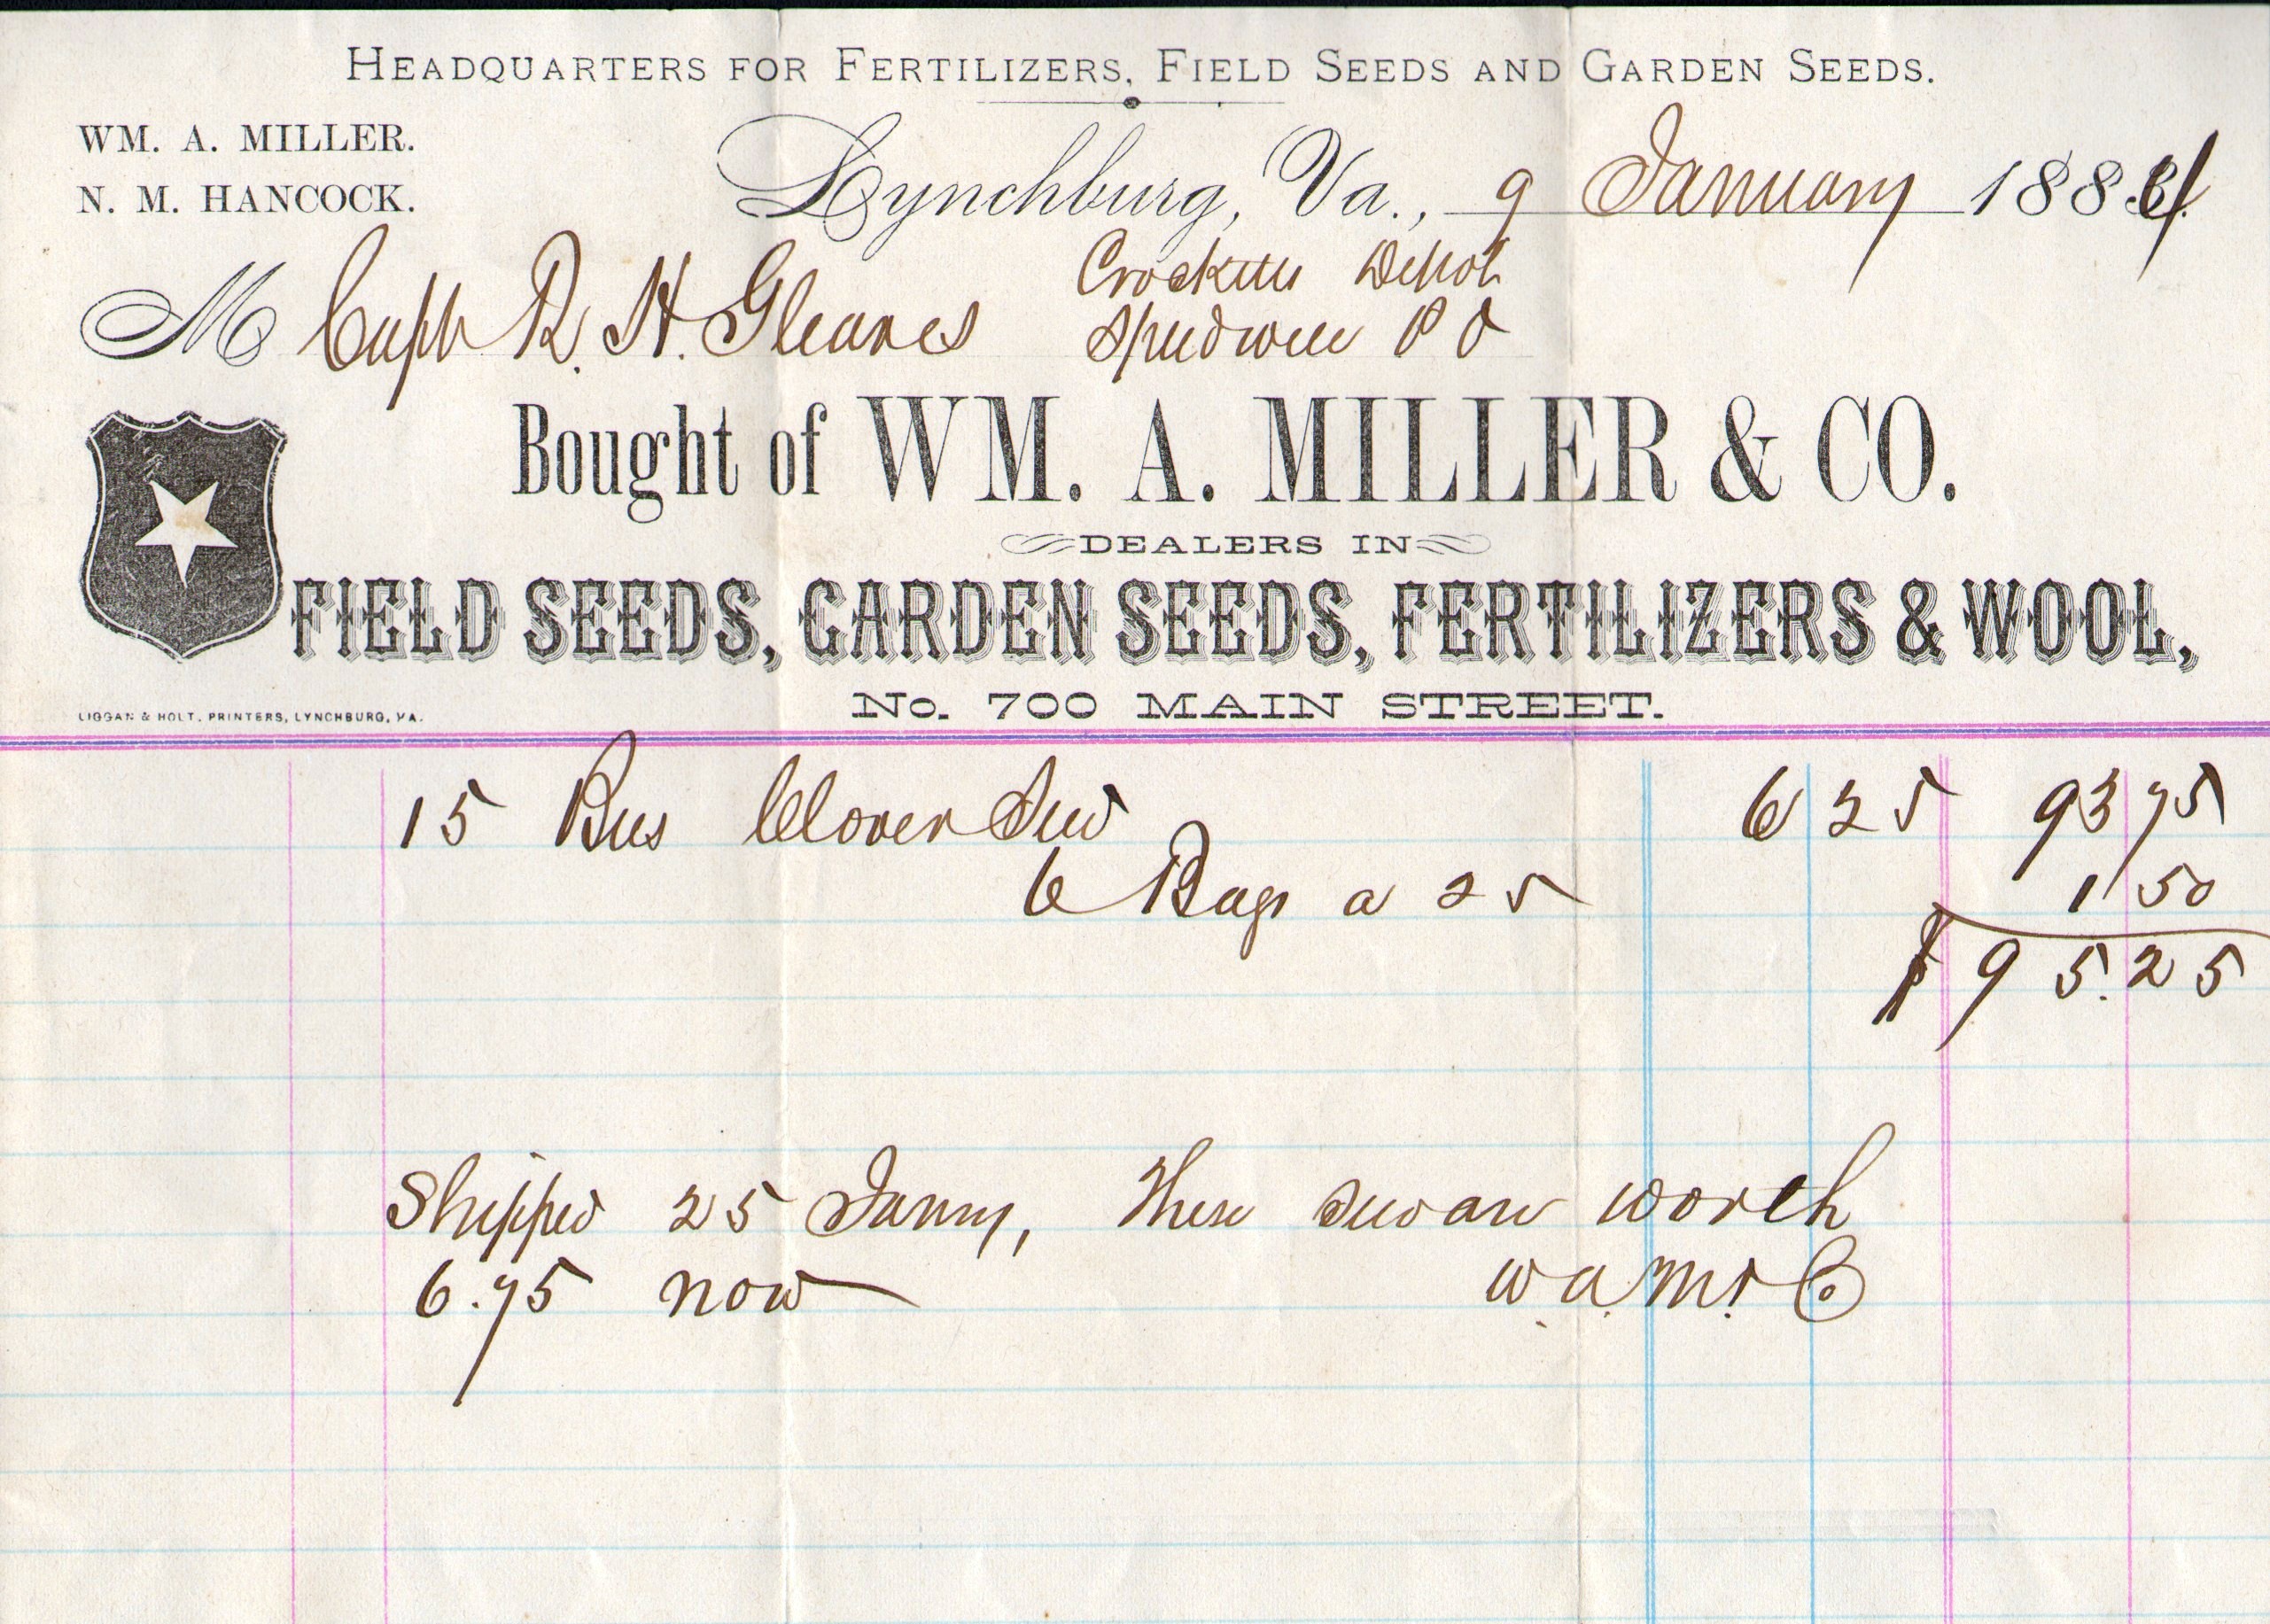 HEADQUARTERS FOR FERTILIZERS, FIELD SEEDS AND GARDEN SEEDS.
WM. A. MILLER.
N. M. HANCOCK.
Lynchburg, Va., 9 January 1884
M Capt R. H. Gleaves
Crocketts Depot
Speedwell P O
Bought of WM. A. MILLER & CO.
DEALERS IN
FIELD SEEDS, GARDEN SEEDS, FERTILIZERS & WOOL,
No. 700 MAIN STREET.
LIGGAN & HOLT, PRINTERS, LYNCHBURG, VA.
15 Bus Clover Seed 6 25 93 75
6 Bags a 25 1 50
$ 95.25
Shipped 25 Janny, These seed are worth
6.75 now W. A. M. & Co